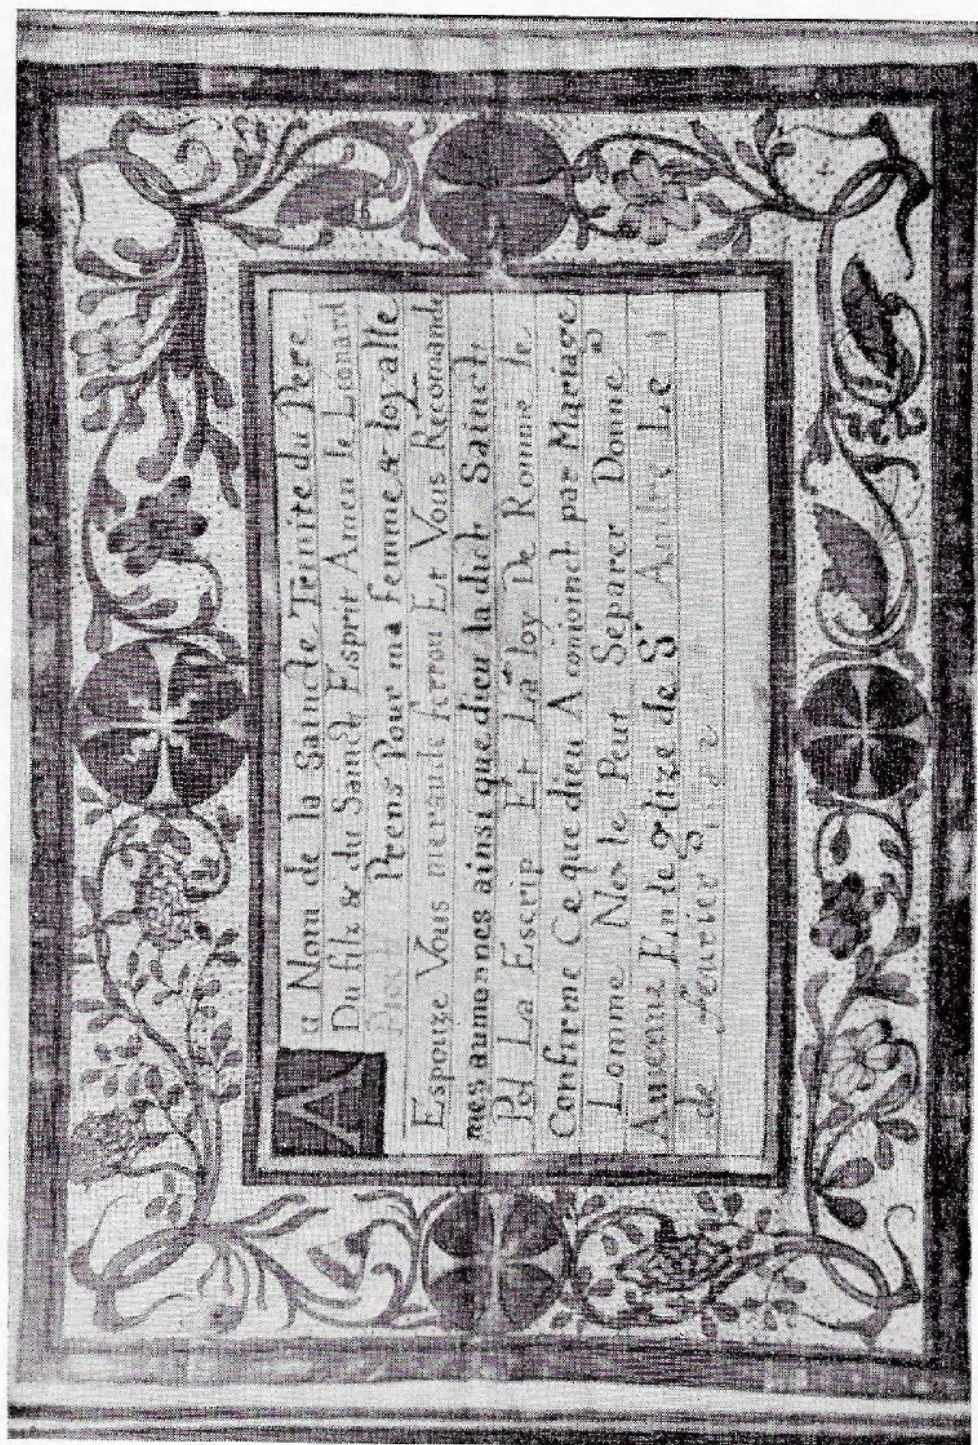 Au Nom de la Saincte Trinite du Pere
Du filz & du Sainct Esprit Amen Je Lionard
Prens Pour ma femme & loyalle
Espouze Vous meraude ferrou Et Vous Recomande
mes aumosnes ainsi que dieu la dict Sainct
Pol La Escrip Et La loy De Romme le
Confirme Ce que dieu A conioinct par Mariage
Lomme Nes le Peut Separer Donne
En leglize de St Andre Le
de feuvier